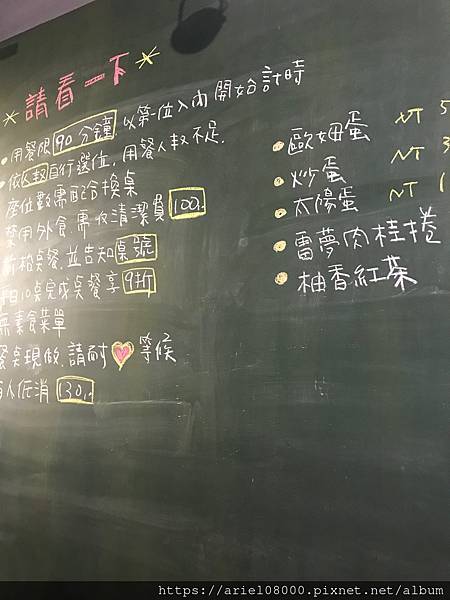 請看一下
用餐限 90 分鐘, 以第一位入內開始計時
依人數自行選位, 用餐人數不足,
座位數需配合換桌
禁用外食, 需收清潔費 100.
桌餐, 並告知桌號
10桌完成桌餐享 9折
無素食菜單
餐桌現做, 請耐♥等候
人低消 130.
歐姆蛋 NT 5
炒蛋 NT 3
太陽蛋 NT 1
雷夢肉桂捲
柚香紅茶
https://ariel08000.pixnet.net/album